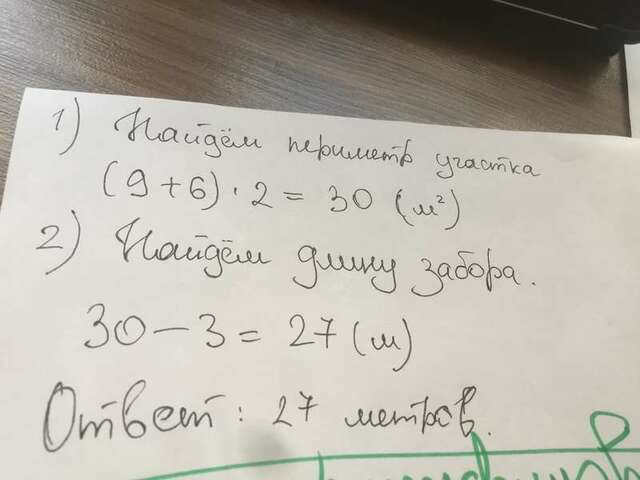 1) Найдём периметр участка
(9+6)·2=30 (м²)
2) Найдём длину забора.
30-3=27(м)
Ответ: 27 метров.